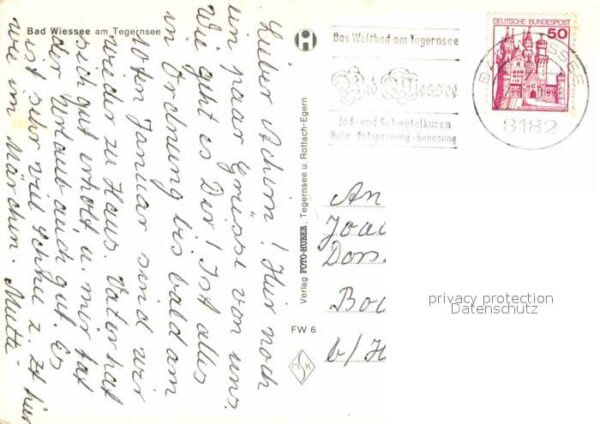 Bad Wiessee am Tegernsee
Lieber Achim! Hier noch
ein paar Grüsse von uns.
Wie geht es Dir! Ist alles
in Ordnung bis bald am
10ten Januar sind wir
wieder zu Haus. Vater hat
sich gut erholt u. mir tat
der Urlaub auch gut. Es
ist sehr viel Schnee z. Zt hier
wie im Märchen. Mutti
Verlag FOTO-HUBER, Tegernsee u. Rottach-Egern
FW 6
Das Weltbad am Tegernsee
Bad Wiessee
Jod- und Schwefelkuren
Ruhe · Entspannung · Genesung
DEUTSCHE BUNDESPOST
50
BAD WIESSEE
8182
An
Joac
Dors
Boc
b/H
privacy protection
Datenschutz